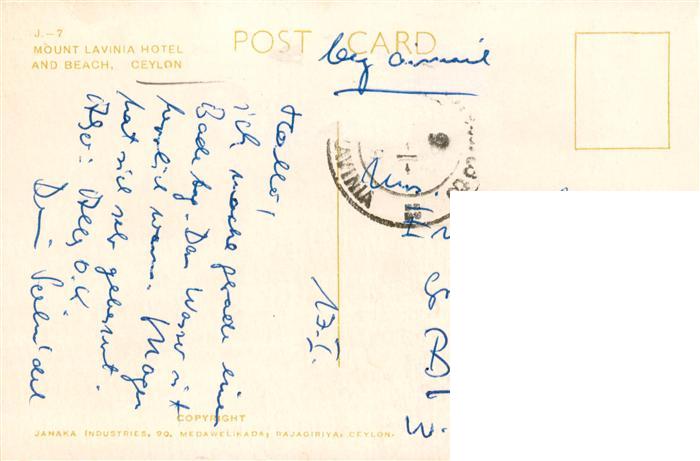 J.–7
MOUNT LAVINIA HOTEL
AND BEACH, CEYLON
POST CARD
by airmail
Hallo!
ich mache gerade einen
Badetag. Das Wasser ist
herrlich warm. Magen
hat sich sehr gebessert.
Also: Alles O.K
Dein
17.I.
LAVINIA
Mrs.
COPYRIGHT
JANAKA INDUSTRIES, 90, MEDAWELIKADA, RAJAGIRIYA, CEYLON.